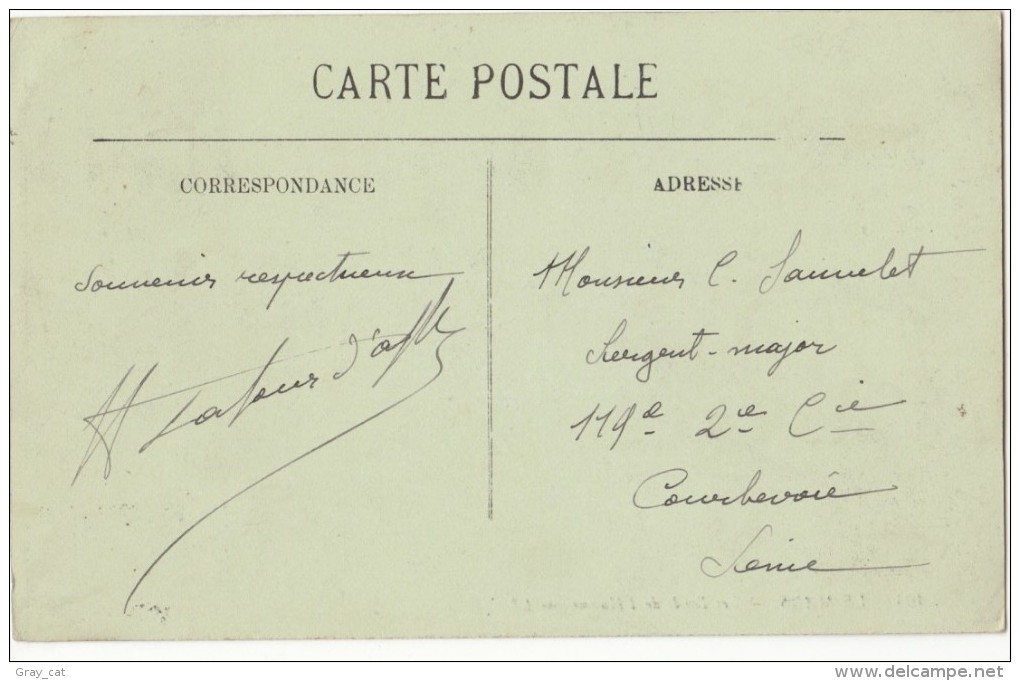 CARTE POSTALE
CORRESPONDANCE
Souvenir respectueux
ADRESSE
Monsieur C. Samulet
Sergent-major
119e 2e Cie
Courbevoie
Seine
Gray_cat
www.delcampe.net